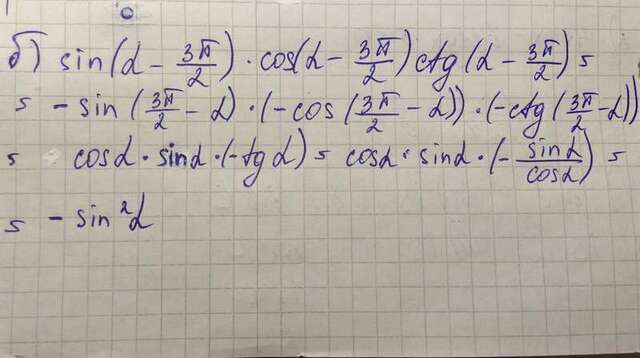 б) sin(α - 3π/2) · cos(α - 3π/2) ctg(α - 3π/2) =
= - sin(3π/2 - α) · (-cos(3π/2 - α)) · (-ctg(3π/2 - α))
= cosα · sinα · (-tgα) = cosα · sinα · (- sinα/cosα) =
= - sin²α